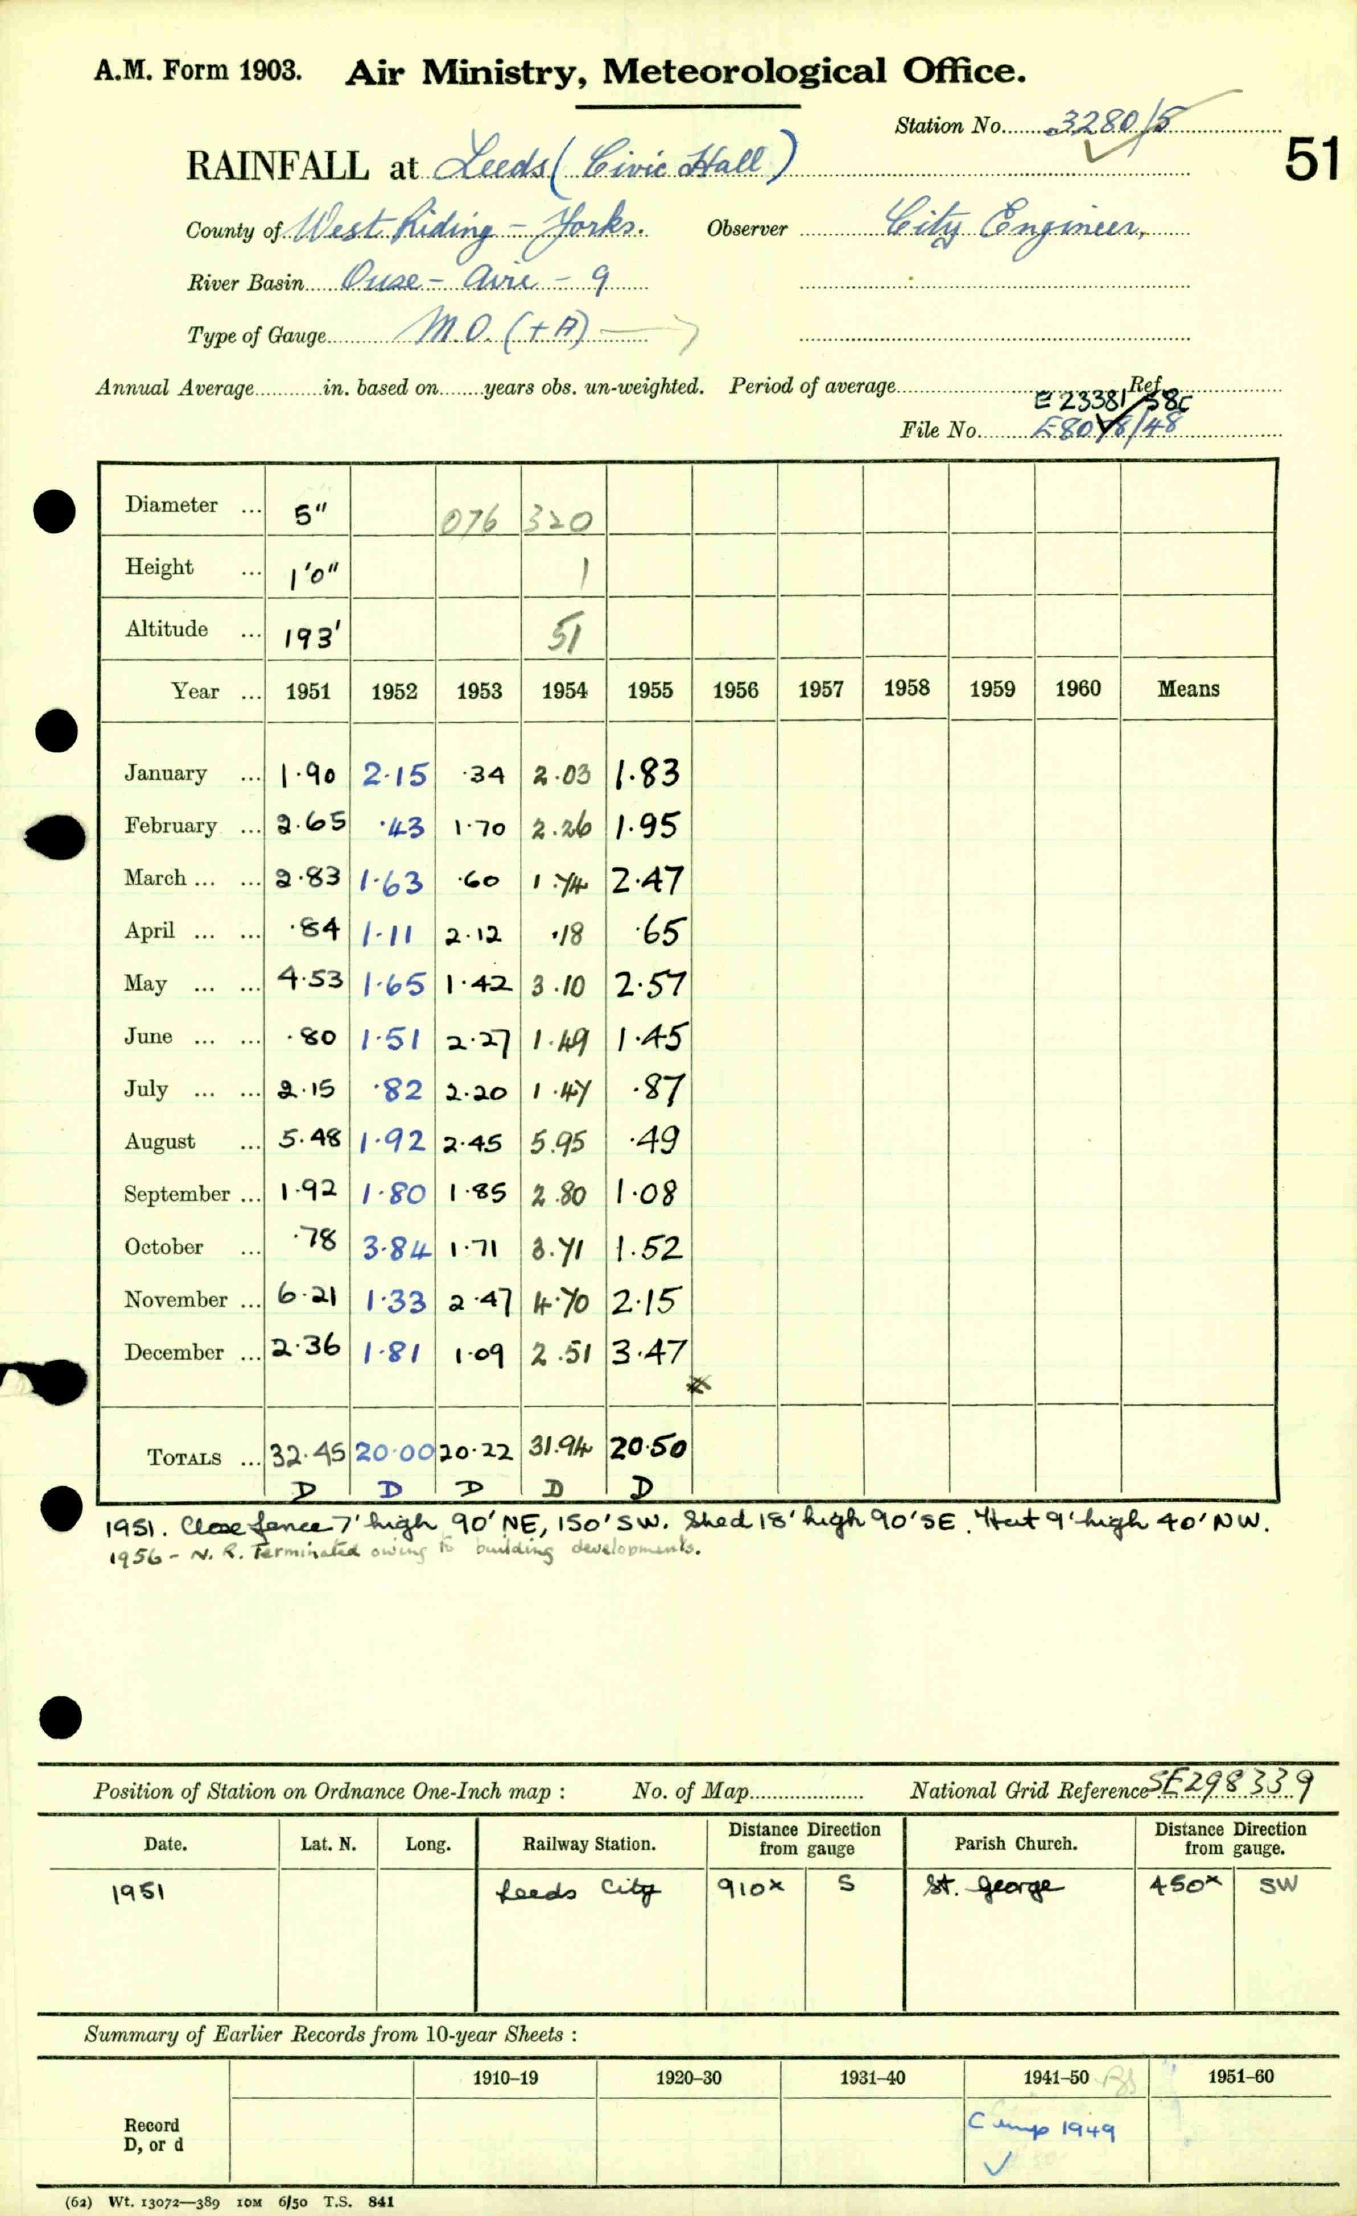 A.M. Form 1903. Air Ministry, Meteorological Office.
Station No. 3280/5
51
RAINFALL at Leeds (Civic Hall)
County of West Riding - Yorks. Observer City Engineer,
River Basin Ouse - Aire - 9
Type of Gauge M.O. (+A)
Annual Average in. based on years obs. un-weighted. Period of average Ref.
E 23381/58c
File No. E8078/48
Diameter ... 5" 076 320
Height ... 1'0" 1
Altitude ... 193' 51
Year ... 1951 1952 1953 1954 1955 1956 1957 1958 1959 1960 Means
January ... 1.90 2.15 .34 2.03 1.83
February ... 2.65 .43 1.70 2.26 1.95
March ... ... 2.83 1.63 .60 1.74 2.47
April ... ... .84 1.11 2.12 .18 .65
May ... ... 4.53 1.65 1.42 3.10 2.57
June ... ... .80 1.51 2.27 1.49 1.45
July ... ... 2.15 .82 2.20 1.47 .87
August ... 5.48 1.92 2.45 5.95 .49
September ... 1.92 1.80 1.85 2.80 1.08
October ... .78 3.84 1.71 3.71 1.52
November ... 6.21 1.33 2.47 4.70 2.15
December ... 2.36 1.81 1.09 2.51 3.47
TOTALS ... 32.45 20.00 20.22 31.94 20.50
D D D D D
1951. Close fence 7' high 90' NE, 150' SW. Shed 18' high 90' SE. Hut 9' high 40' NW.
1956 - N. R. Terminated owing to building developments.
Position of Station on Ordnance One-Inch map : No. of Map National Grid Reference SE 298339
Date. Lat. N. Long. Railway Station. Distance Direction from gauge Parish Church. Distance Direction from gauge.
1951 Leeds City 910x S St. George 450x SW
Summary of Earlier Records from 10-year Sheets :
1910–19 1920–30 1931–40 1941–50 1951–60
Record
D, or d
1949
(62) Wt. 13072—389 10M 6/50 T.S. 841